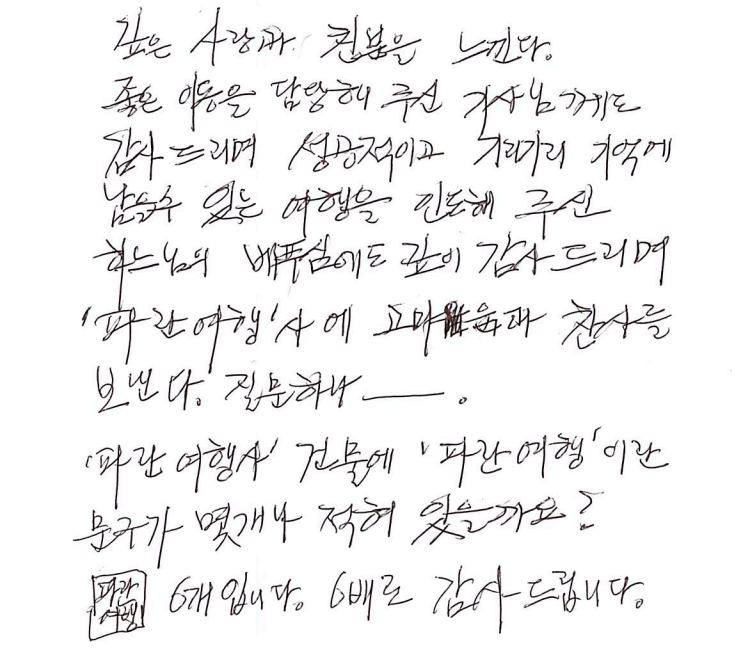 깊은 사랑과 친분을 느낀다.
좋은 이동을 담당해 주신 기사님께도
감사 드리며 성공적이고 기리기리 기억에
남을수 있는 여행을 인도해 주신
하느님의 베푸심에도 깊이 감사 드리며
'파란여행'사에 고마움과 찬사를
보낸다. 질문하나 ——.
'파란여행사' 건물에 '파란여행'이란
문구가 몇개나 적혀 있을까요?
파란
여행
6개입니다. 6배로 감사드립니다.